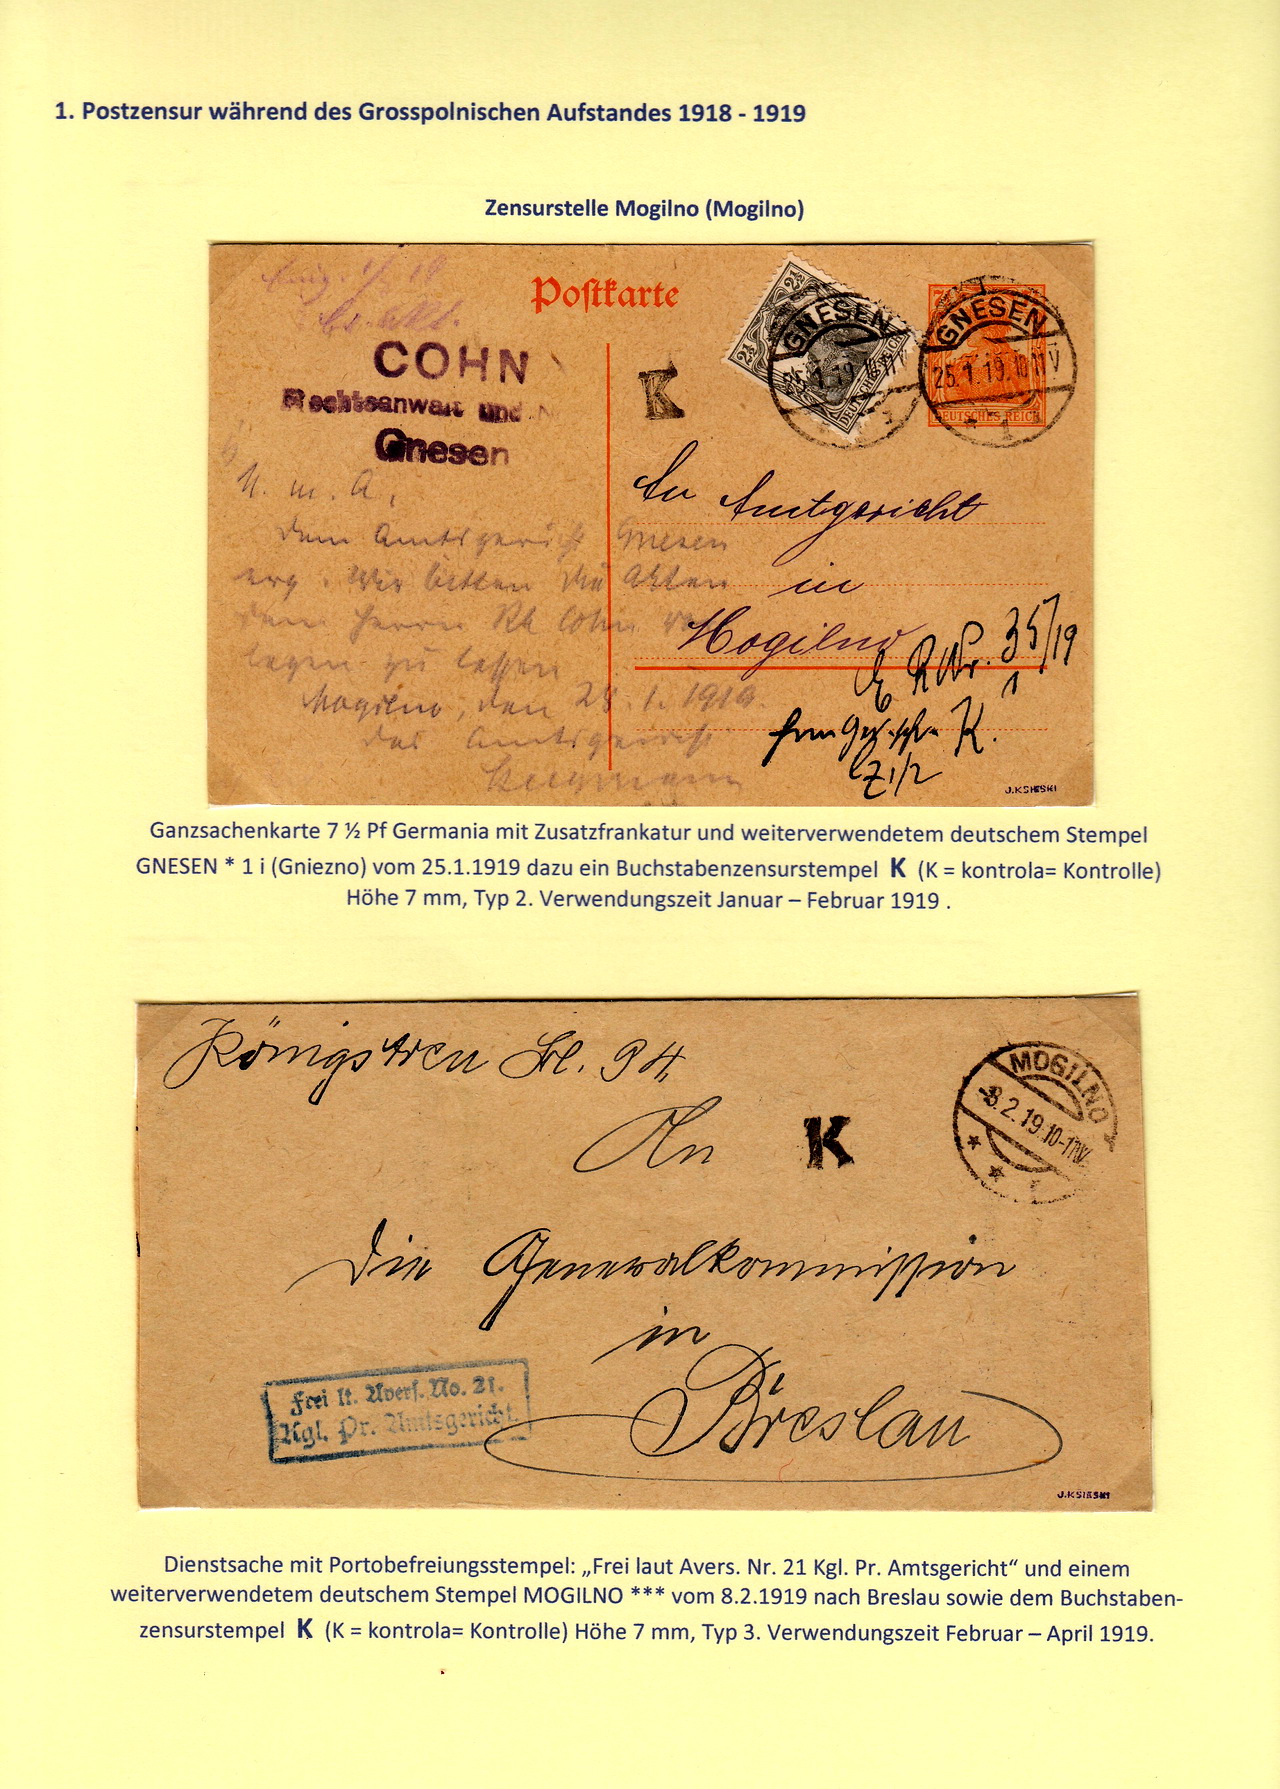 1. Postzensur während des Grosspolnischen Aufstandes 1918 - 1919
Zensurstelle Mogilno (Mogilno)
Postkarte
COHN
Rechtsanwalt und N
Gnesen
K
2½
2½
DEUTSCHES REICH
GNESEN
25.1.19.10-11V
* 1
GNESEN
25.1.19.10-11V
* 1 i
DEUTSCHES REICH
An Amtgericht
in
Mogilno
R Nr. 35/19
K.
U. m. A.,
dem Amtsgericht Gnesen
erg. Wir bitten die Akten
dem Herrn RA Cohn vor
legen zu lassen
Mogilno, den 28.1.1919.
Das Amtsgericht
J.KSIESKI
Ganzsachenkarte 7 ½ Pf Germania mit Zusatzfrankatur und weiterverwendetem deutschem Stempel
GNESEN * 1 i (Gniezno) vom 25.1.1919 dazu ein Buchstabenzensurstempel K (K = kontrola= Kontrolle)
Höhe 7 mm, Typ 2. Verwendungszeit Januar – Februar 1919 .
Königstreu Bl. 94.
An K
MOGILNO
-8.2.19.10-11V
* * *
Die Generalkommission
in
Breslau
Frei lt. Avers. No. 21.
Kgl. Pr. Amtsgericht.
J.KSIESKI
Dienstsache mit Portobefreiungsstempel: „Frei laut Avers. Nr. 21 Kgl. Pr. Amtsgericht“ und einem
weiterverwendetem deutschem Stempel MOGILNO *** vom 8.2.1919 nach Breslau sowie dem Buchstaben-
zensurstempel K (K = kontrola= Kontrolle) Höhe 7 mm, Typ 3. Verwendungszeit Februar – April 1919.